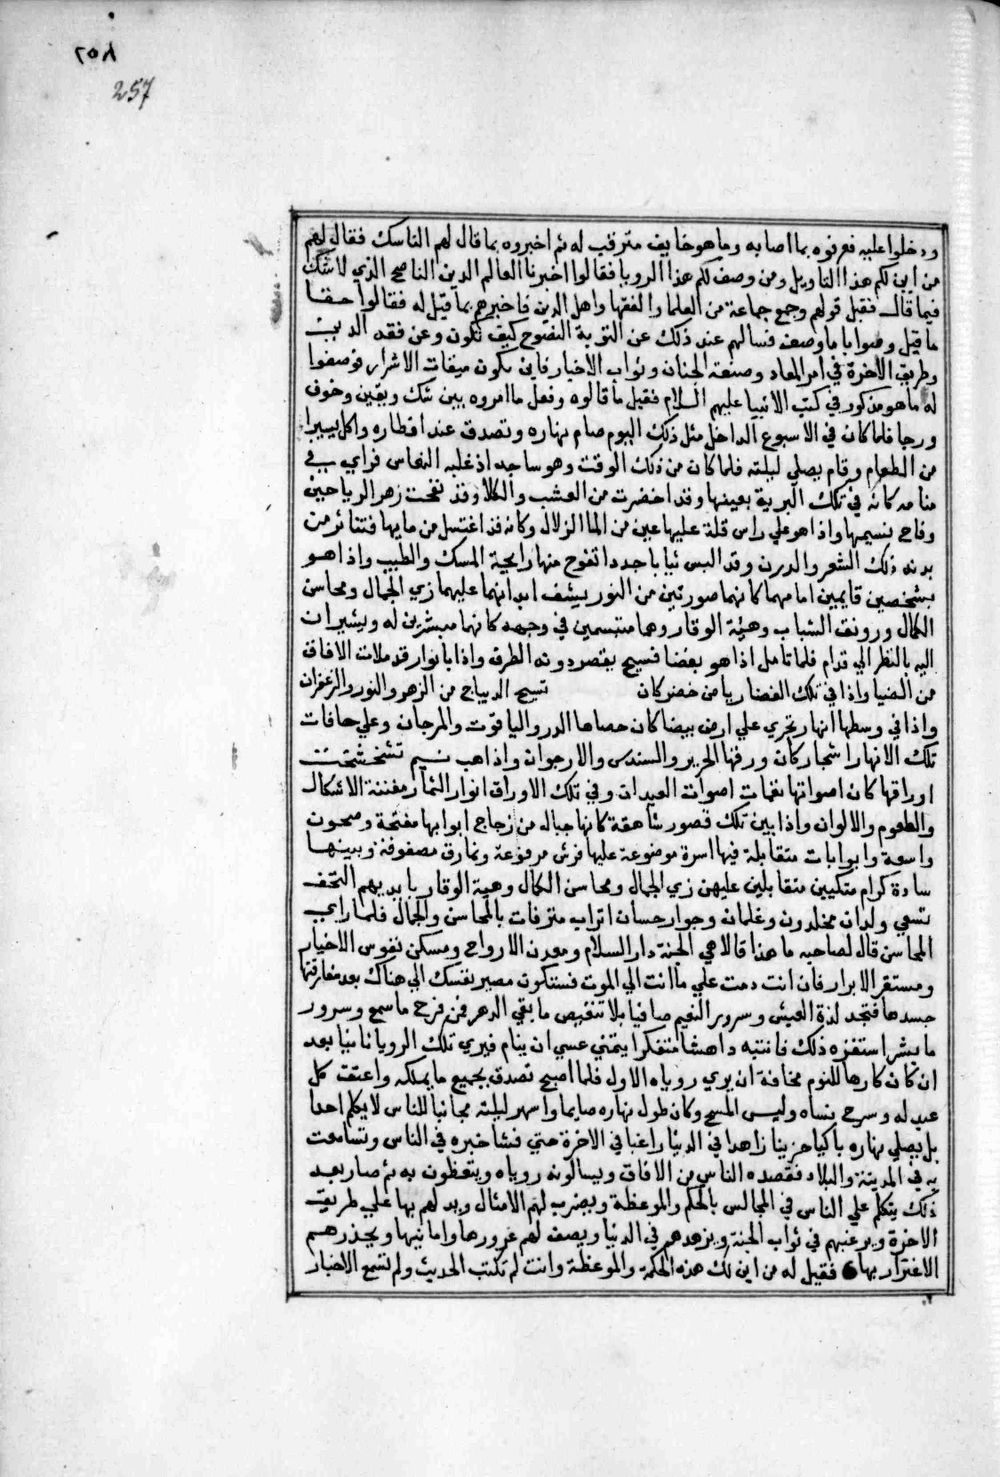 ٢٥٨
257
ودخلوا عليه فعرفوه بما اصابه وما هو خايف مترقب له ثم اخبروه بما قال لهم الناسك فقال لهم
من اين لكم هذا التاويل ومن وصف لكم هذا الرويا فقالوا اخبرنا العالم الدين الناصح الذي لا شك
فيما قال فقبل قولهم وجمع جماعة من العلما والفقها واهل الدين فاخبرهم بما قيل له فقالوا حقا
ما قيل وصوابا ما وصف فسالهم عند ذلك عن التوبة النصوح كيف تكون وعن فقه الدين
وطريق الاخرة في امر المعاد وصنعة الجنان وثواب الاخيار فاين تكون ميقات الاشرار فوصفوا
له ما هو مذكور في كتب الانبيا عليهم السلام فقبل ما قالوه وفعل ما امروه بين شك ويقين وخوف
ورجا فلما كان في الاسبوع الداخل مثل ذلك اليوم صام نهاره وتصدق عند افطاره واكل يسيرا
من الطعام وقام يصلي ليلته فلما كان من ذلك الوقت وهو ساجد اذ غلبه النعاس فراي في
منامه كانه في تلك البرية بعينها وقد اخضرت من العشب والكلا وقد تفتحت زهر الرياحين
وفاح نسيمها واذا هو علي راس قلة عليها عين من الما الزلال وكانه قد اغتسل من مايها فتناثر من
بدنه ذلك الشعر والدرن وقد البس ثيابا جددا تفوح منها رايحة المسك والطيب واذا هو
بشخصين قايمين امامهما كانهما صورتين من النور يشف ابدانهما عليهما زي الجمال ومحاسن
الكمال ورونق الشباب وهيئة الوقار وهما متبسمين في وجهه كانهما مبشرين له ويشيران
اليه بالنظر الي قدام فلما تامل اذا هو بفضا فسيح يقصر دونه الطرف واذا بانوار قد ملات الافاق
من الضيا واذا في تلك الفضا رياض خضر كان نسيج الديباج من الزهر والنور والزعفران
واذا في وسطها انهار تجري علي ارض بيضا كان حصاها الدر والياقوت والمرجان وعلي حافات
تلك الانهار اشجار كان ورقها الحرير والسندس والارجوان واذا هب نسيم تشخشخت
اوراقها كان اصواتها نغمات اصوات العيدان وفي تلك الاوراق انوار الثمار مفننة الاشكال
والطعوم والالوان واذا بين تلك قصور شاهقة كانها جبال من زجاج ابوابها مفتحة وصحون
واسعة وابوابات متقابلة فيها اسرة موضوعة عليها فرش مرفوعة ونمارق مصفوفة وبينها
سادة كرام متكيين متقابلين عليهن زي الجمال ومحاسن الكمال وهيبة الوقار بايديهم التحف
تسعي ولدان مخلدون وغلمان وجوار حسان اتراب مترفات بالمحاسن والجمال فلما راي
المحاسن قال لصاحبه ما هذا قالا هي الجنة دار السلام ومعدن الارواح ومسكن نفوس الاخيار
ومستقر الابرار فان انت دمت علي ما انت الي الموت فستكون مصير نفسك الي هناك بعد مفارقتها
جسدها فتجد لذة العيش وسرور النعيم صافيا بلا تنغيص ما بقي الدهر فمن فرح ما سمع وسرور
ما بشر استفزه ذلك فانتبه داهشا متفكرا يتمني عسي ان ينام فيري تلك الرويا ثانيا بعد
ان كان كارها للنوم مخافة ان يري روياه الاول فلما اصبح تصدق بجميع ما يملكه واعتق كل
عبد له وسرح نساه ولبس المسح وكان طول نهاره صايما واسهر ليلته مجانبا للناس لا يكلم احدا
بل يصلي نهاره باكيا حزينا زاهدا في الدنيا راغبا في الاخرة حتي فشا خبره في الناس وتسامعت
به في المدينة والبلاد فقصده الناس من الافاق ويسالونه روياه ويتعظون به ثم صار بعد
ذلك يتكلم علي الناس في المجالس بالحكم والموعظة ويضرب لهم الامثال ويدلهم بها علي طريق
الاخرة ويرغبهم في ثواب الجنة ويزهدهم في الدنيا ويصف لهم غرورها وامانيها ويحذرهم
الاغترار بها فقيل له من اين لك هذه الحكمة والموعظة وانت لم تكتب الحديث ولم تسمع الاخبار